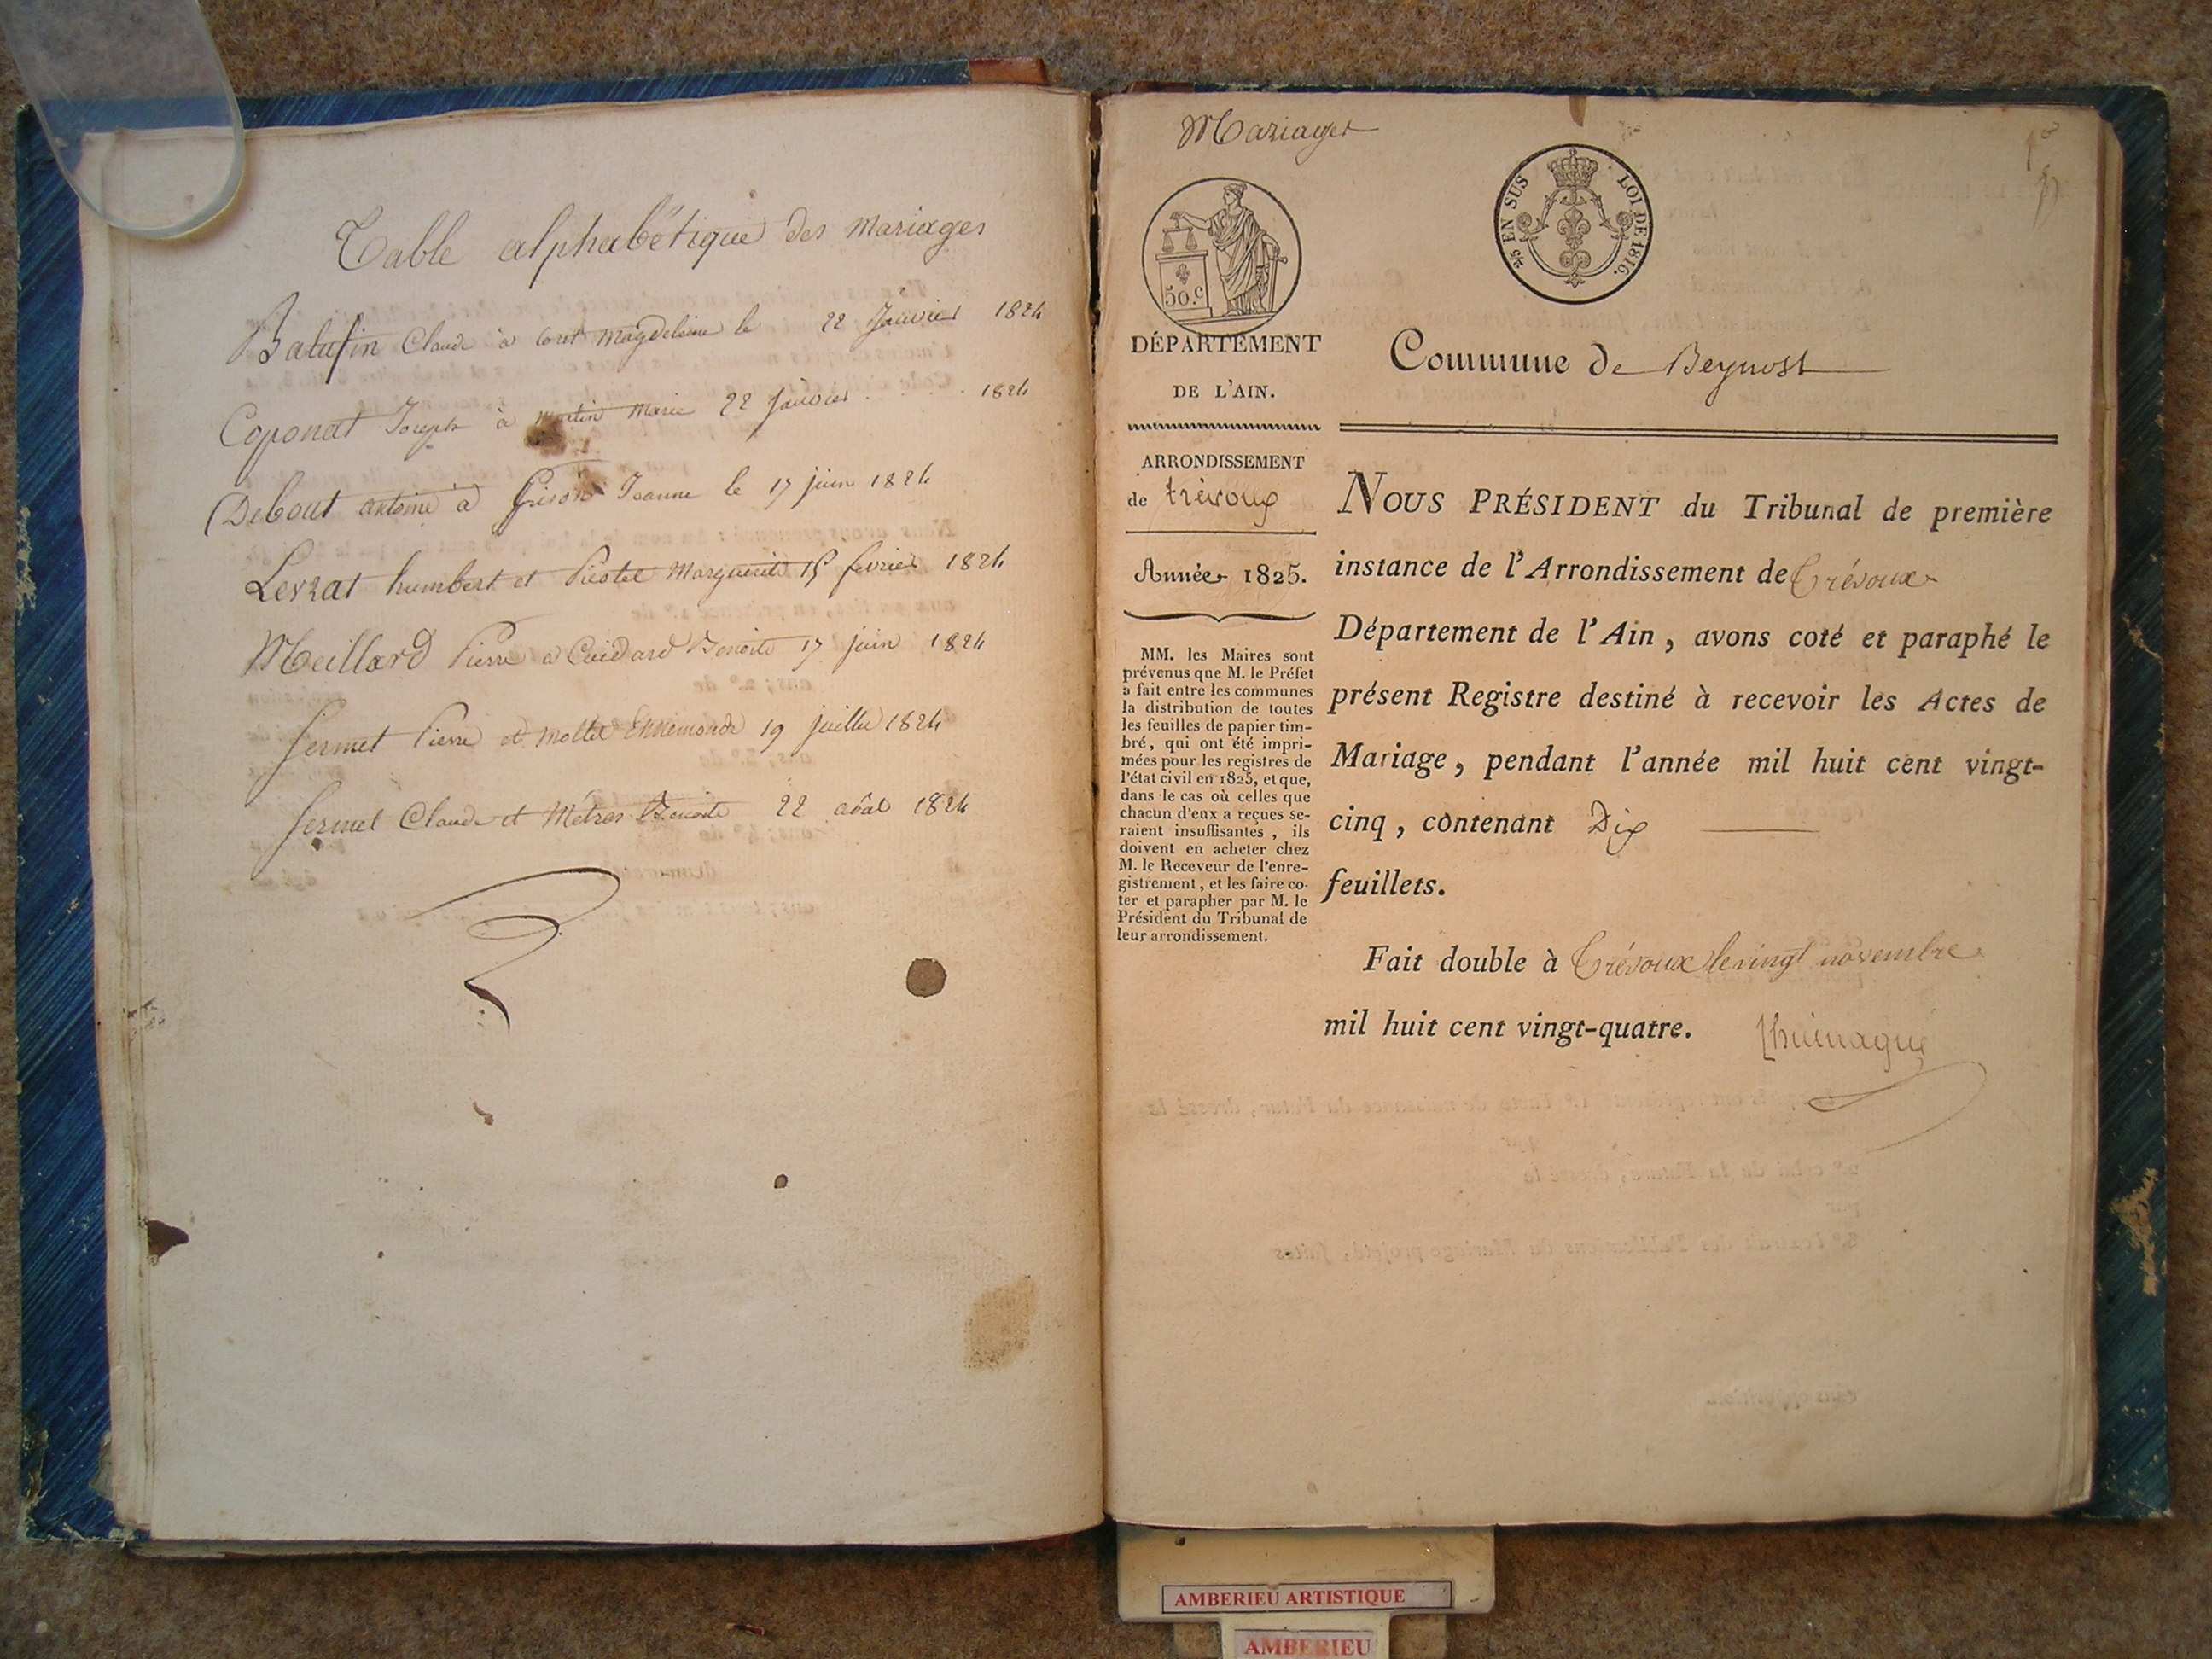 Table alphabétique des mariages
Batufin Claude à Coret Magdeleine le 22 Janvier 1824
Coponat Joseph à Martin Marie 22 Janvier 1824
Debout antoine à Grison Jeanne le 17 juin 1824
Levrat humbert et Marguerite 15 fevrier 1824
Meillard Pierre a Cuidard Benoite 17 juin 1824
fermet Pierre et Mollet Ennemonde 19 juillet 1824
fermet Claude et Métras Benoite 22 aôut 1824
Mariages
50.c
¼ EN SUS LOI DE 1816.
DÉPARTEMENT
DE L'AIN.
Commune de Beynost
ARRONDISSEMENT
de trévoux
Année 1825.
MM. les Maires sont
prévenus que M. le Préfet
a fait entre les communes
la distribution de toutes
les feuilles de papier tim-
bré, qui ont été impri-
mées pour les registres de
l'état civil en 1825, et que,
dans le cas où celles que
chacun d'eux a reçues se-
raient insuffisantes, ils
doivent en acheter chez
M. le Receveur de l'enre-
gistrement, et les faire co-
ter et parapher par M. le
Président du Tribunal de
leur arrondissement.
NOUS PRÉSIDENT du Tribunal de première
instance de l'Arrondissement de Trévoux
Département de l'Ain, avons coté et paraphé le
présent Registre destiné à recevoir les Actes de
Mariage, pendant l'année mil huit cent vingt-
cinq, contenant Dix
feuillets.
Fait double à Trévoux le vingt novembre
mil huit cent vingt-quatre.
AMBERIEU ARTISTIQUE
AMBERIEU